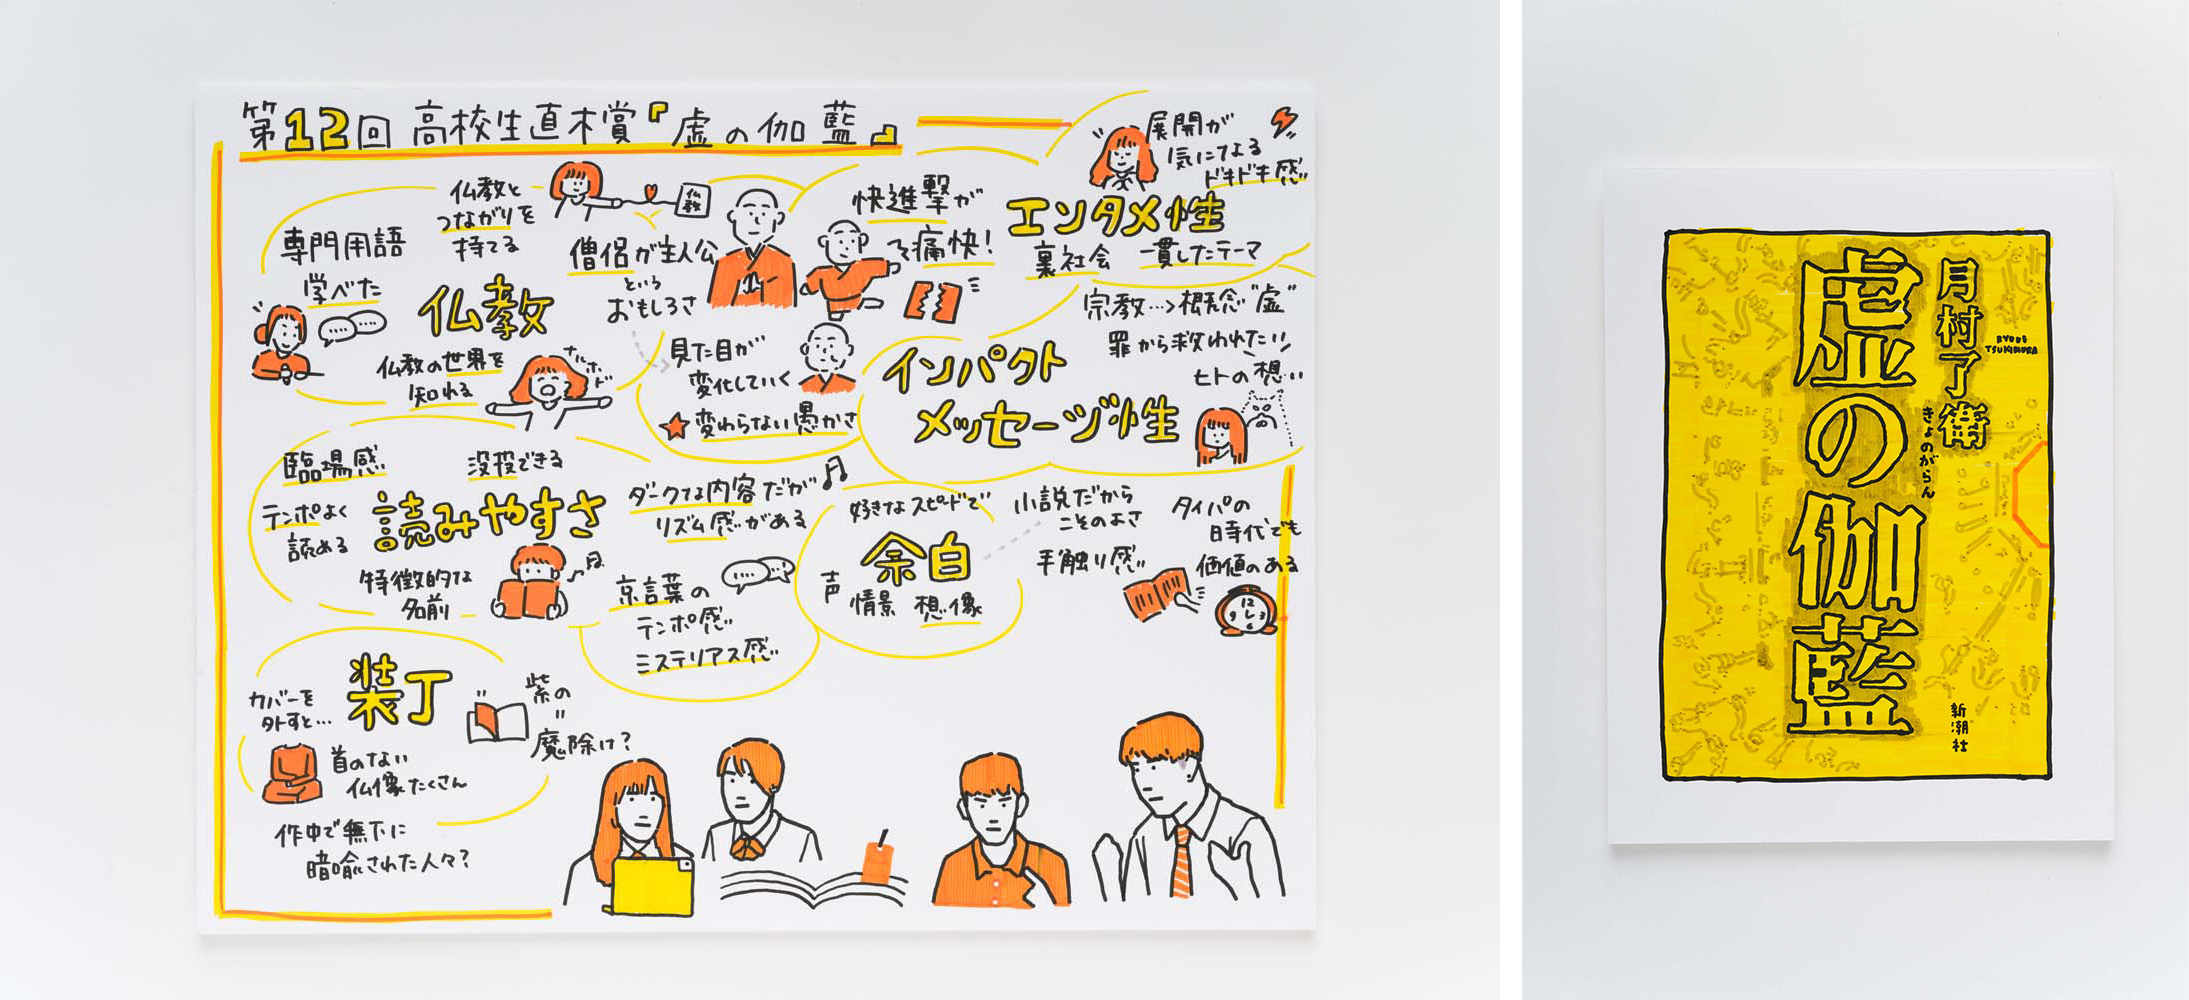 第12回 高校生直木賞『虚の伽藍』
展開が
気になる
ドキドキ感
エンタメ性
裏社会 一貫したテーマ
仏教と
つながりを
持てる
仏教
専門用語
学べた
仏教
仏教の世界を
知れる
ナルホド
僧侶が主人公
という
おもしろさ
快進撃が
痛快!
見た目が
変化していく
変わらない愚かさ
宗教…→概念"虚"
罪から救われたい
ヒトの想い
インパクト
メッセージ性
臨場感
没投できる
テンポよく
読める
読みやすさ
特徴的な
名前
ダークな内容だが
リズム感がある
京言葉の
テンポ感
ミステリアス感
好きなスピードで
余白
声
情景 想像
小説だから
こそのよさ
手触り感
タイパの
時代でも
価値のある
12
3
6
9
装丁
カバーを
外すと…
首のない
仏像たくさん
作中で無下に
暗喩された人々?
紫の
=
魔除け?
月村了衛
RYOUE
TSUKIMURA
虚の伽藍
きょのがらん
新潮社